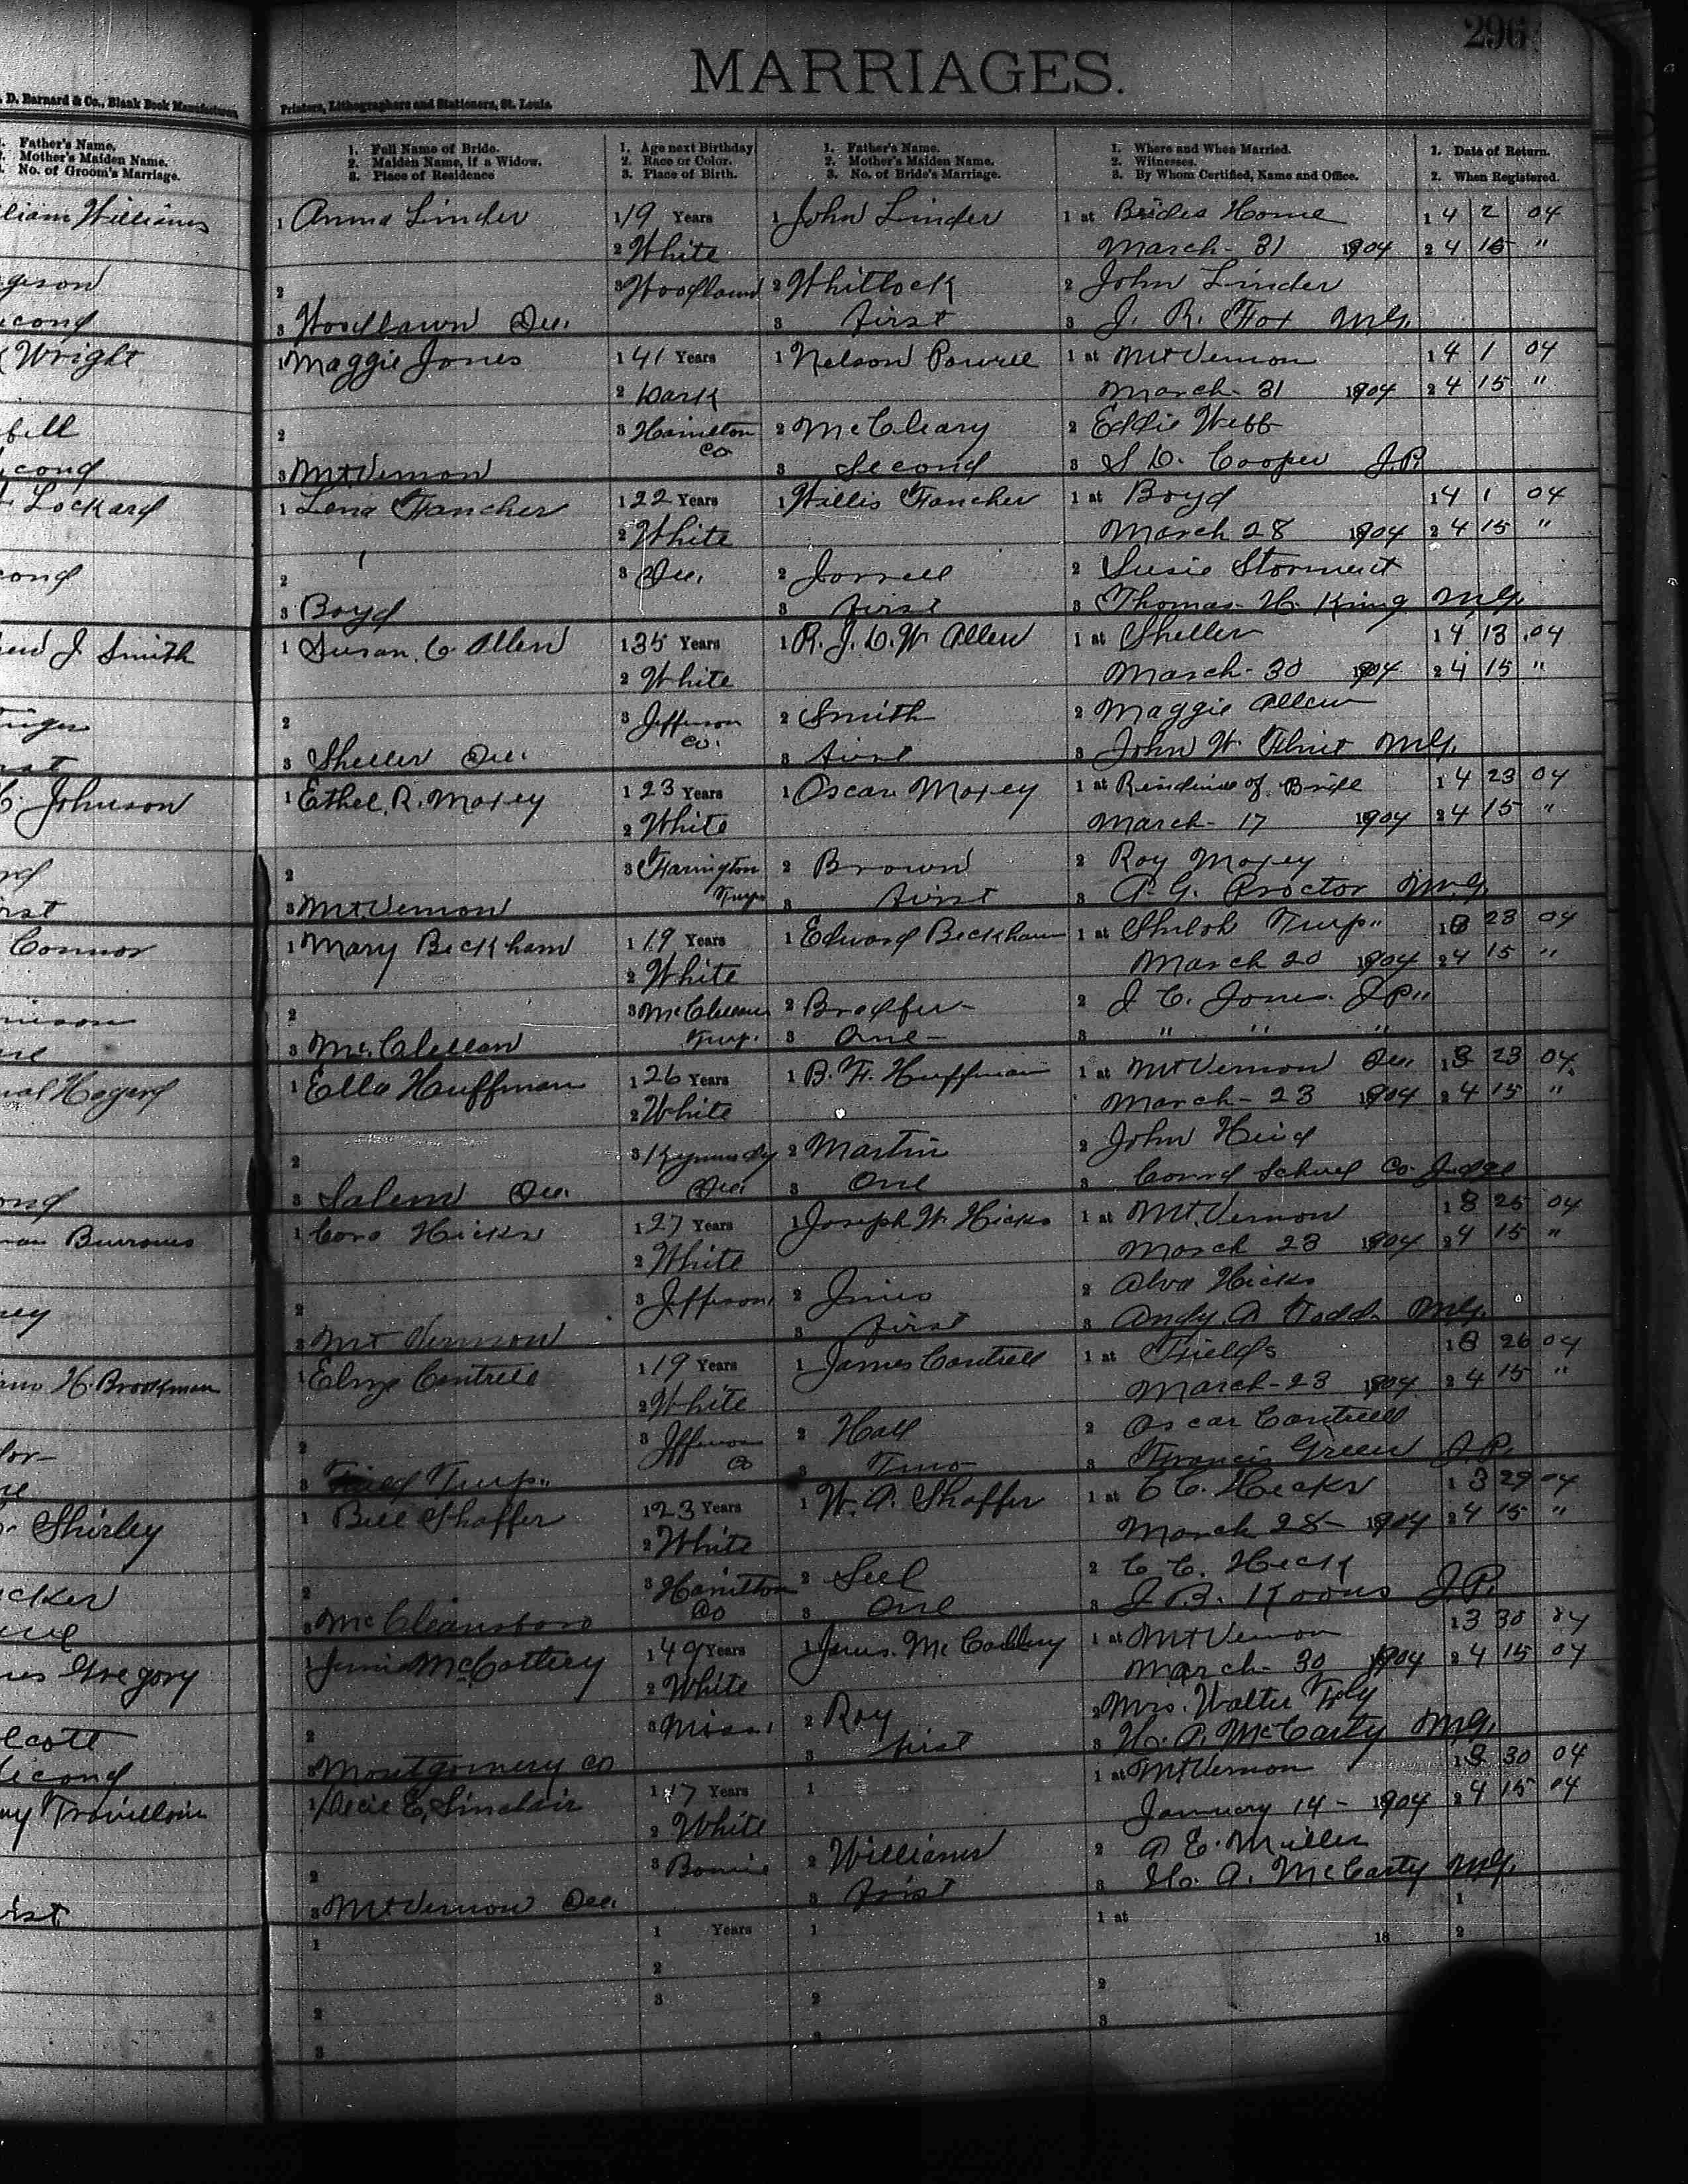 296
MARRIAGES.
D. Barnard & Co., Blank Book Manufacturers
Printers, Lithographers and Stationers, St. Louis.
Father's Name.
Mother's Maiden Name.
No. of Groom's Marriage.
1. Full Name of Bride.
2. Maiden Name, if a Widow.
3. Place of Residence
1. Age next Birthday
2. Race or Color.
3. Place of Birth.
1. Father's Name.
2. Mother's Maiden Name.
3. No. of Bride's Marriage.
1. Where and When Married.
2. Witnesses.
3. By Whom Certified, Name and Office.
1. Date of Return.
2. When Registered.
liam Williams
1 Anna Linder 1 19 Years 1 John Linder 1 at Brides Home 1 4 2 04
2 White March - 31 1904 2 4 15 "
gerson
2 3 Woodlawn 2 Whitlock 2 John Linder
cond
3 Woodlawn Ill. 3 first 3 J. R. Fox M.G.
Wright
1 Maggie Jones 1 41 Years 1 Nelson Powell 1 at Mt Vernon 1 4 1 04
2 Dark March - 31 1904 2 4 15 "
2 3 Hamilton Co 2 McCleary 2 Eddie Webb
cond
3 Mt Vernon 3 Second 3 S D. Cooper J.P.
Lockard
1 Lena Fancher 1 22 Years 1 Willis Fancher 1 at Boyd 1 4 1 04
2 White March 28 1904 2 4 15 "
cond
2 3 Ill. 2 Jorrell 2 Susie Storment
3 Boyd 3 first 3 Thomas H. King M.G.
J Smith
1 Susan. C. Allen 1 35 Years 1 R. J. D. W. Allen 1 at Sheller 1 4 13 04
2 White March - 30 1904 2 4 15 "
2 3 Jefferson Co. 2 Smith 2 Maggie Allen
3 Sheller Ill. 3 first 3 John W. Flint M.G.
Johnson
1 Ethel. R. Maxey 1 23 Years 1 Oscar Maxey 1 at Residence of Bride 1 4 23 04
2 White March - 17 1904 2 4 15 "
2 3 Farrington Twp 2 Brown 2 Roy Maxey
rst
3 Mt Vernon 3 first 3 A. G. Proctor M.G.
Connor
1 Mary Beckham 1 19 Years 1 Edward Beckham 1 at Shiloh Twp.. 1 3 23 04
2 White March 20 1904 2 4 15 "
2 3 McClellan Twp. 2 2 J. C. Jones. J.P..
3 McClellan 3 One - 3 " " "
1 Ella Huffman 1 26 Years 1 B. F. Huffman 1 at Mt Vernon Ill. 1 3 23 04
2 White March - 23 1904 2 4 15 "
2 3 Kinmundy Ill. 2 Martin 2 John
ond
3 Salem Ill. 3 One 3 Conrad Schuel Co. Judge
Burrows
1 Cora Hicks 1 27 Years 1 Joseph W. Hicks 1 at Mt. Vernon 1 3 25 04
2 White March 23 1904 2 4 15 "
2 3 Jefferson 2 2 Alva Hicks
3 Mt Vernon 3 first 3 Andy. A. Todd. M.G.
H. Brookman
1 Cantrell 1 19 Years 1 James Cantrell 1 at Fields 1 3 26 04
2 White March - 23 1904 2 4 15 "
2 3 Jefferson Co 2 Hall 2 Oscar Cantrell
3 Field Twp.. 3 Two 3 Francis Green J.P.
Shirley
1 Bell Shaffer 1 23 Years 1 W. A. Shaffer 1 at C C. Hecks 1 3 29 04
2 White March 28 - 1904 2 4 15 "
cker
2 3 Hamilton Co 2 Seel 2 C. C. Heck
3 McCleansboro 3 One 3 J. B. Koons J.P.
Gregory
1 Jennie McCottery 1 49 Years 1 1 at Mt Vernon 1 3 30 04
2 White March - 30 1904 2 4 15 04
lcott
2 3 Miss. 2 Roy 2 Mrs. Walter
econd
3 Montgomery Co 3 first 3 H. A. McCarty M.G.
1 E. Sinclair 1 17 Years 1 1 at Mt Vernon 1 3 30 04
2 White January 14 - 1904 2 4 15 04
2 3 Bonnie 2 Williams 2 A E. Miller
irst
3 Mt Vernon Ill. 3 first 3 H. A. McCarty M.G.
1 1 Years 1 1 at 1
2 18 2
2 3 2 2
3 3 3